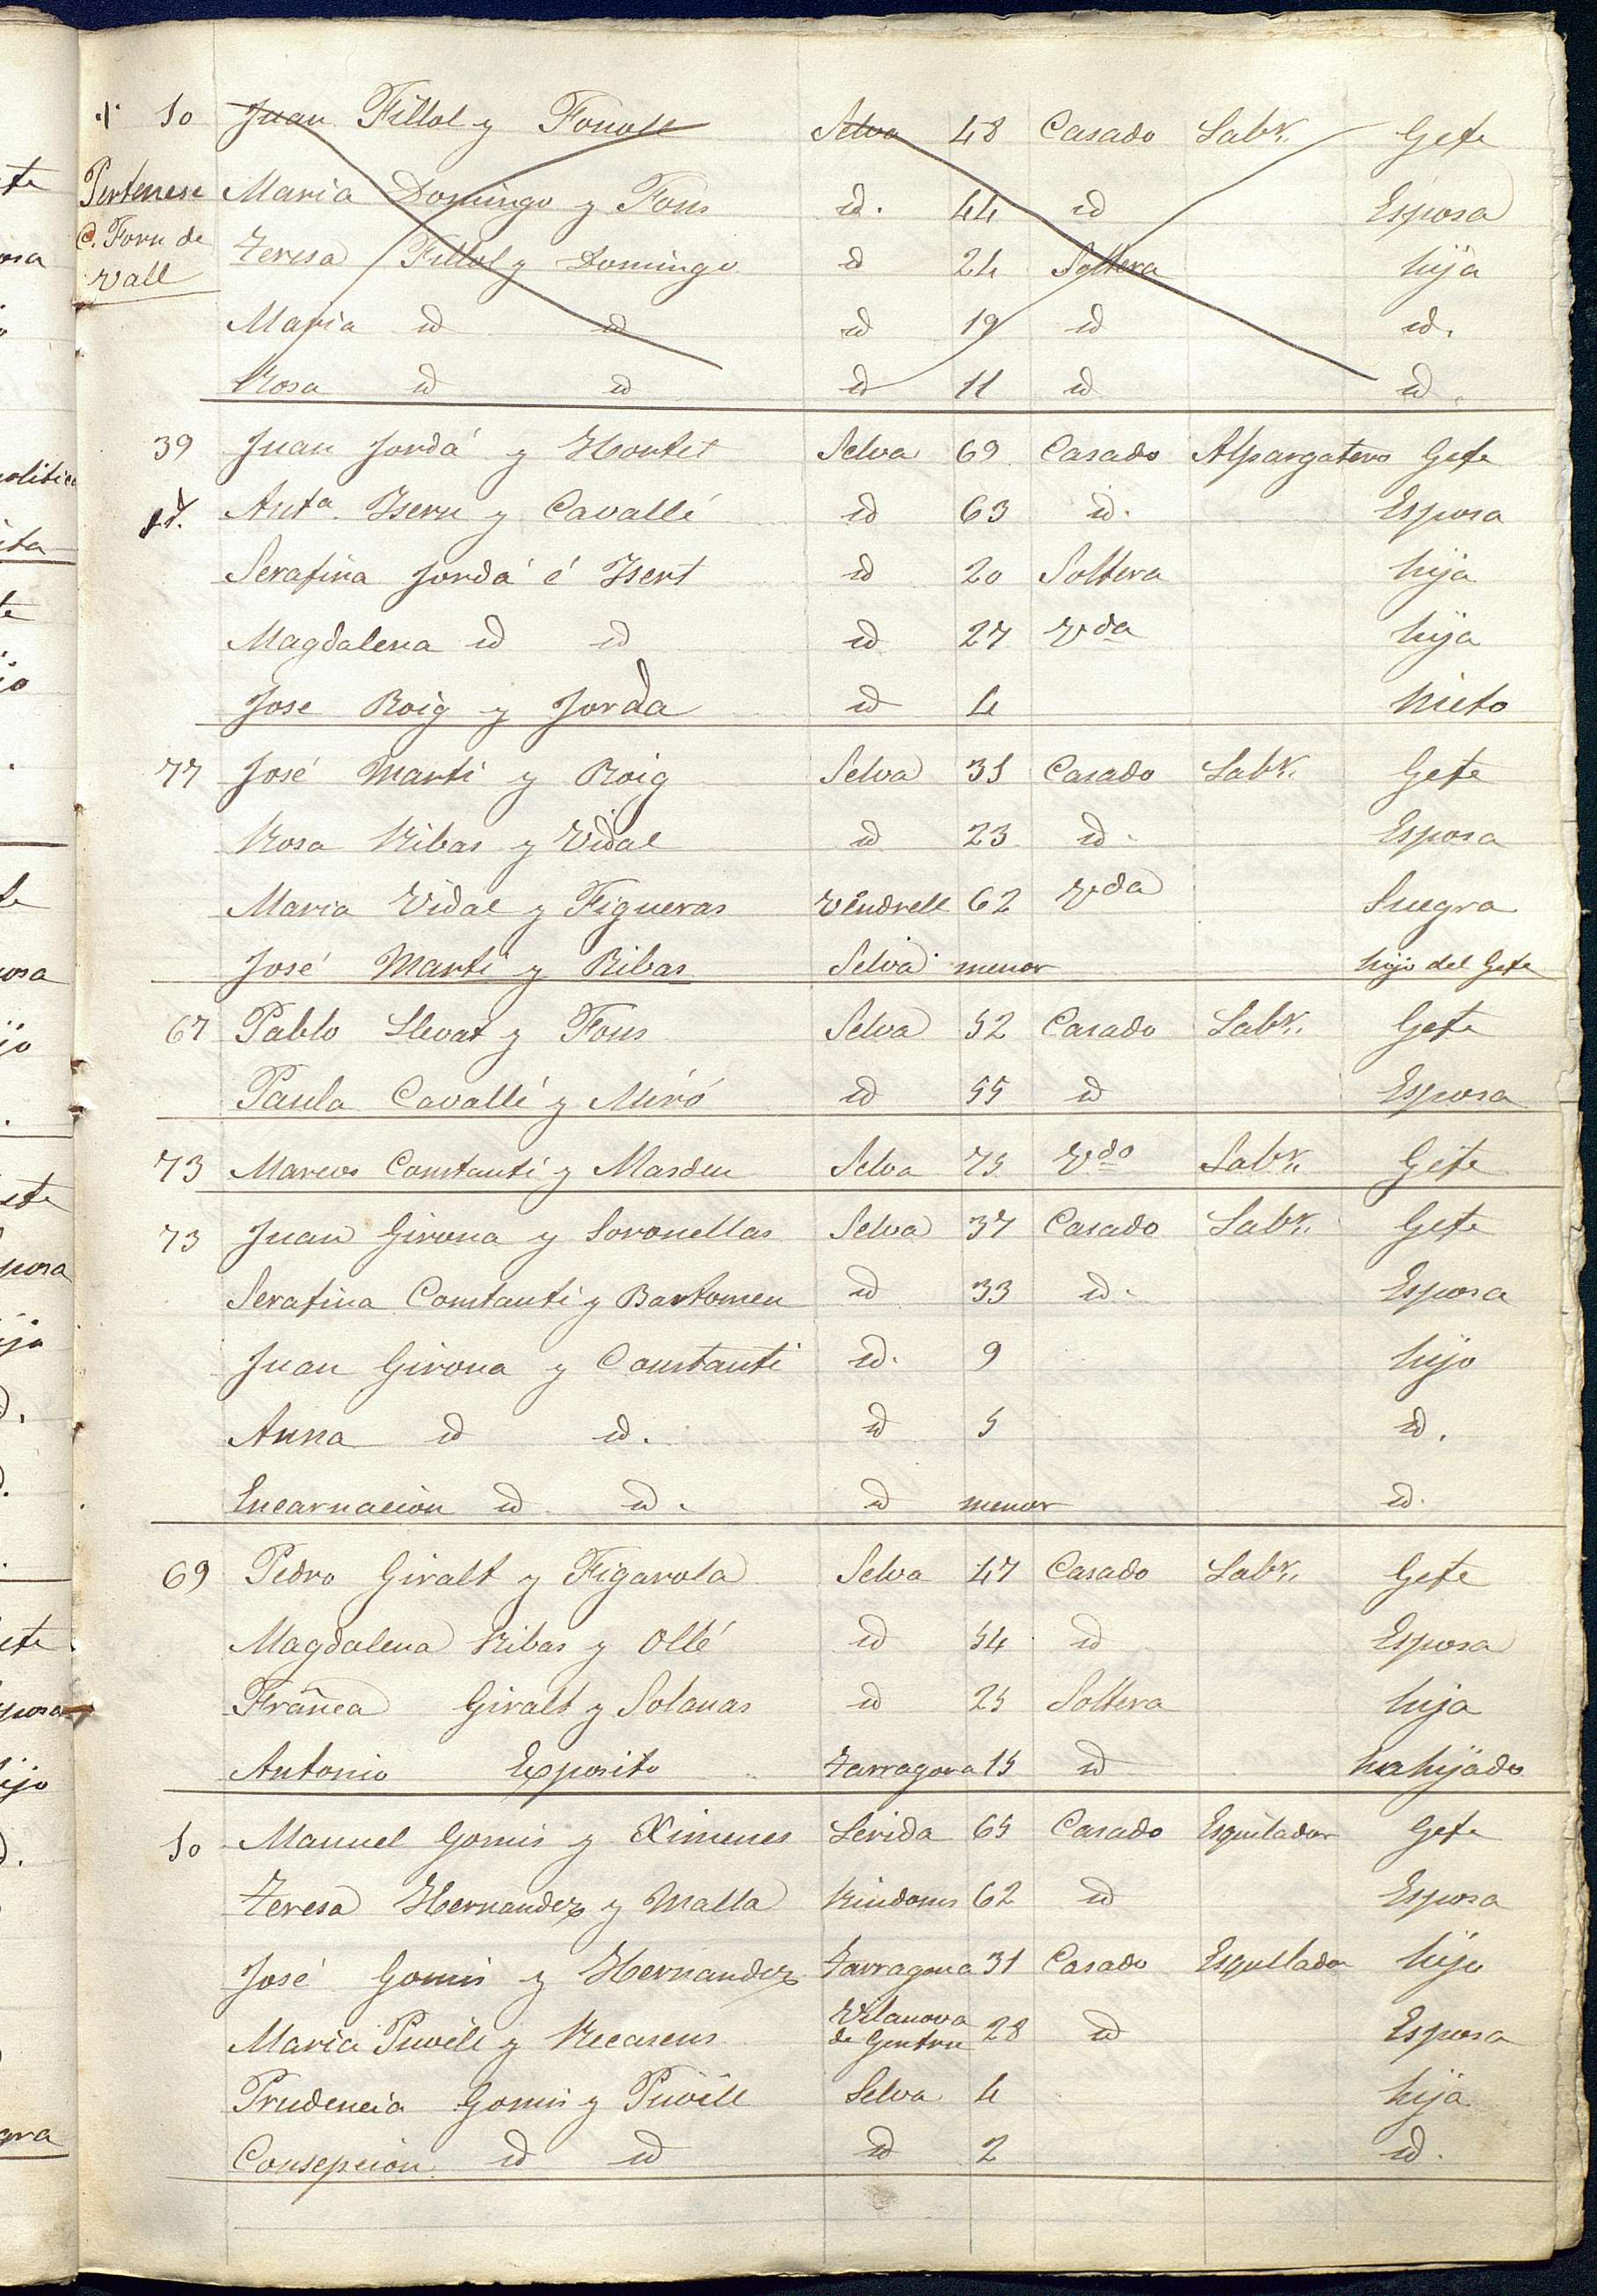 50 Juan Fillol y Fonoll Selva 48 Casado Labr. Gefe
Pertenese Maria Domingo y Fons id. 44 id Esposa
C. Forn de Teresa Fillol y Domingo id 24 Soltera hija
Vall
Maria id id id 19 id id.
Rosa id id id 11 id id.
39 Juan Jordá y Hortet Selva 69 Casado Alpargatero Gefe
Anta. Isern y Cavallé id 63 id. Esposa
Serafina Jordá é Isert id 20 Soltera hija
Magdalena id id id 27 Vda hija
Jose Roig y Jorda id 4 nieto
77 José Marti y Roig Selva 31 Casado Labr. Gefe
Rosa Ribas y Vidal id 23 id. Esposa
Maria Vidal y Figueras Vendrell 62 Vda Suegra
José Marti y Ribas Selva menor hijo del Gefe
67 Pablo Llevat y Fons Selva 52 Casado Labr. Gefe
Paula Cavallé y Miró id 55 id Esposa
73 Marcos Constanti y Masdeu Selva 75 Vdo Labr. Gefe
73 Juan Girona y Soronellas Selva 37 Casado Labr. Gefe
Serafina Constanti y Bartomeu id 33 id. Esposa
Juan Girona y Constanti id. 9 hijo
Anna id id. id 5 id.
Encarnacion id id. id menor id.
69 Pedro Giralt y Figarola Selva 47 Casado Labr. Gefe
Magdalena Ribas y Ollé id 54 id Esposa
Franca Giralt y Solanas id 25 Soltera hija
Antonio Exposito Tarragona 15 id hahijado
50 Manuel Gomis y Ximenes Lerida 65 Casado Esquilador Gefe
Teresa Hernandez y Malla Riudoms 62 id Esposa
José Gomis y Hernandez Tarragona 31 Casado Esquilador hijo
Vilanova
Maria Puvill y Recasens de Gentru 28 id Esposa
Prudencia Gomis y Puvill Selva 4 hija
Consepcion id id id 2 id.